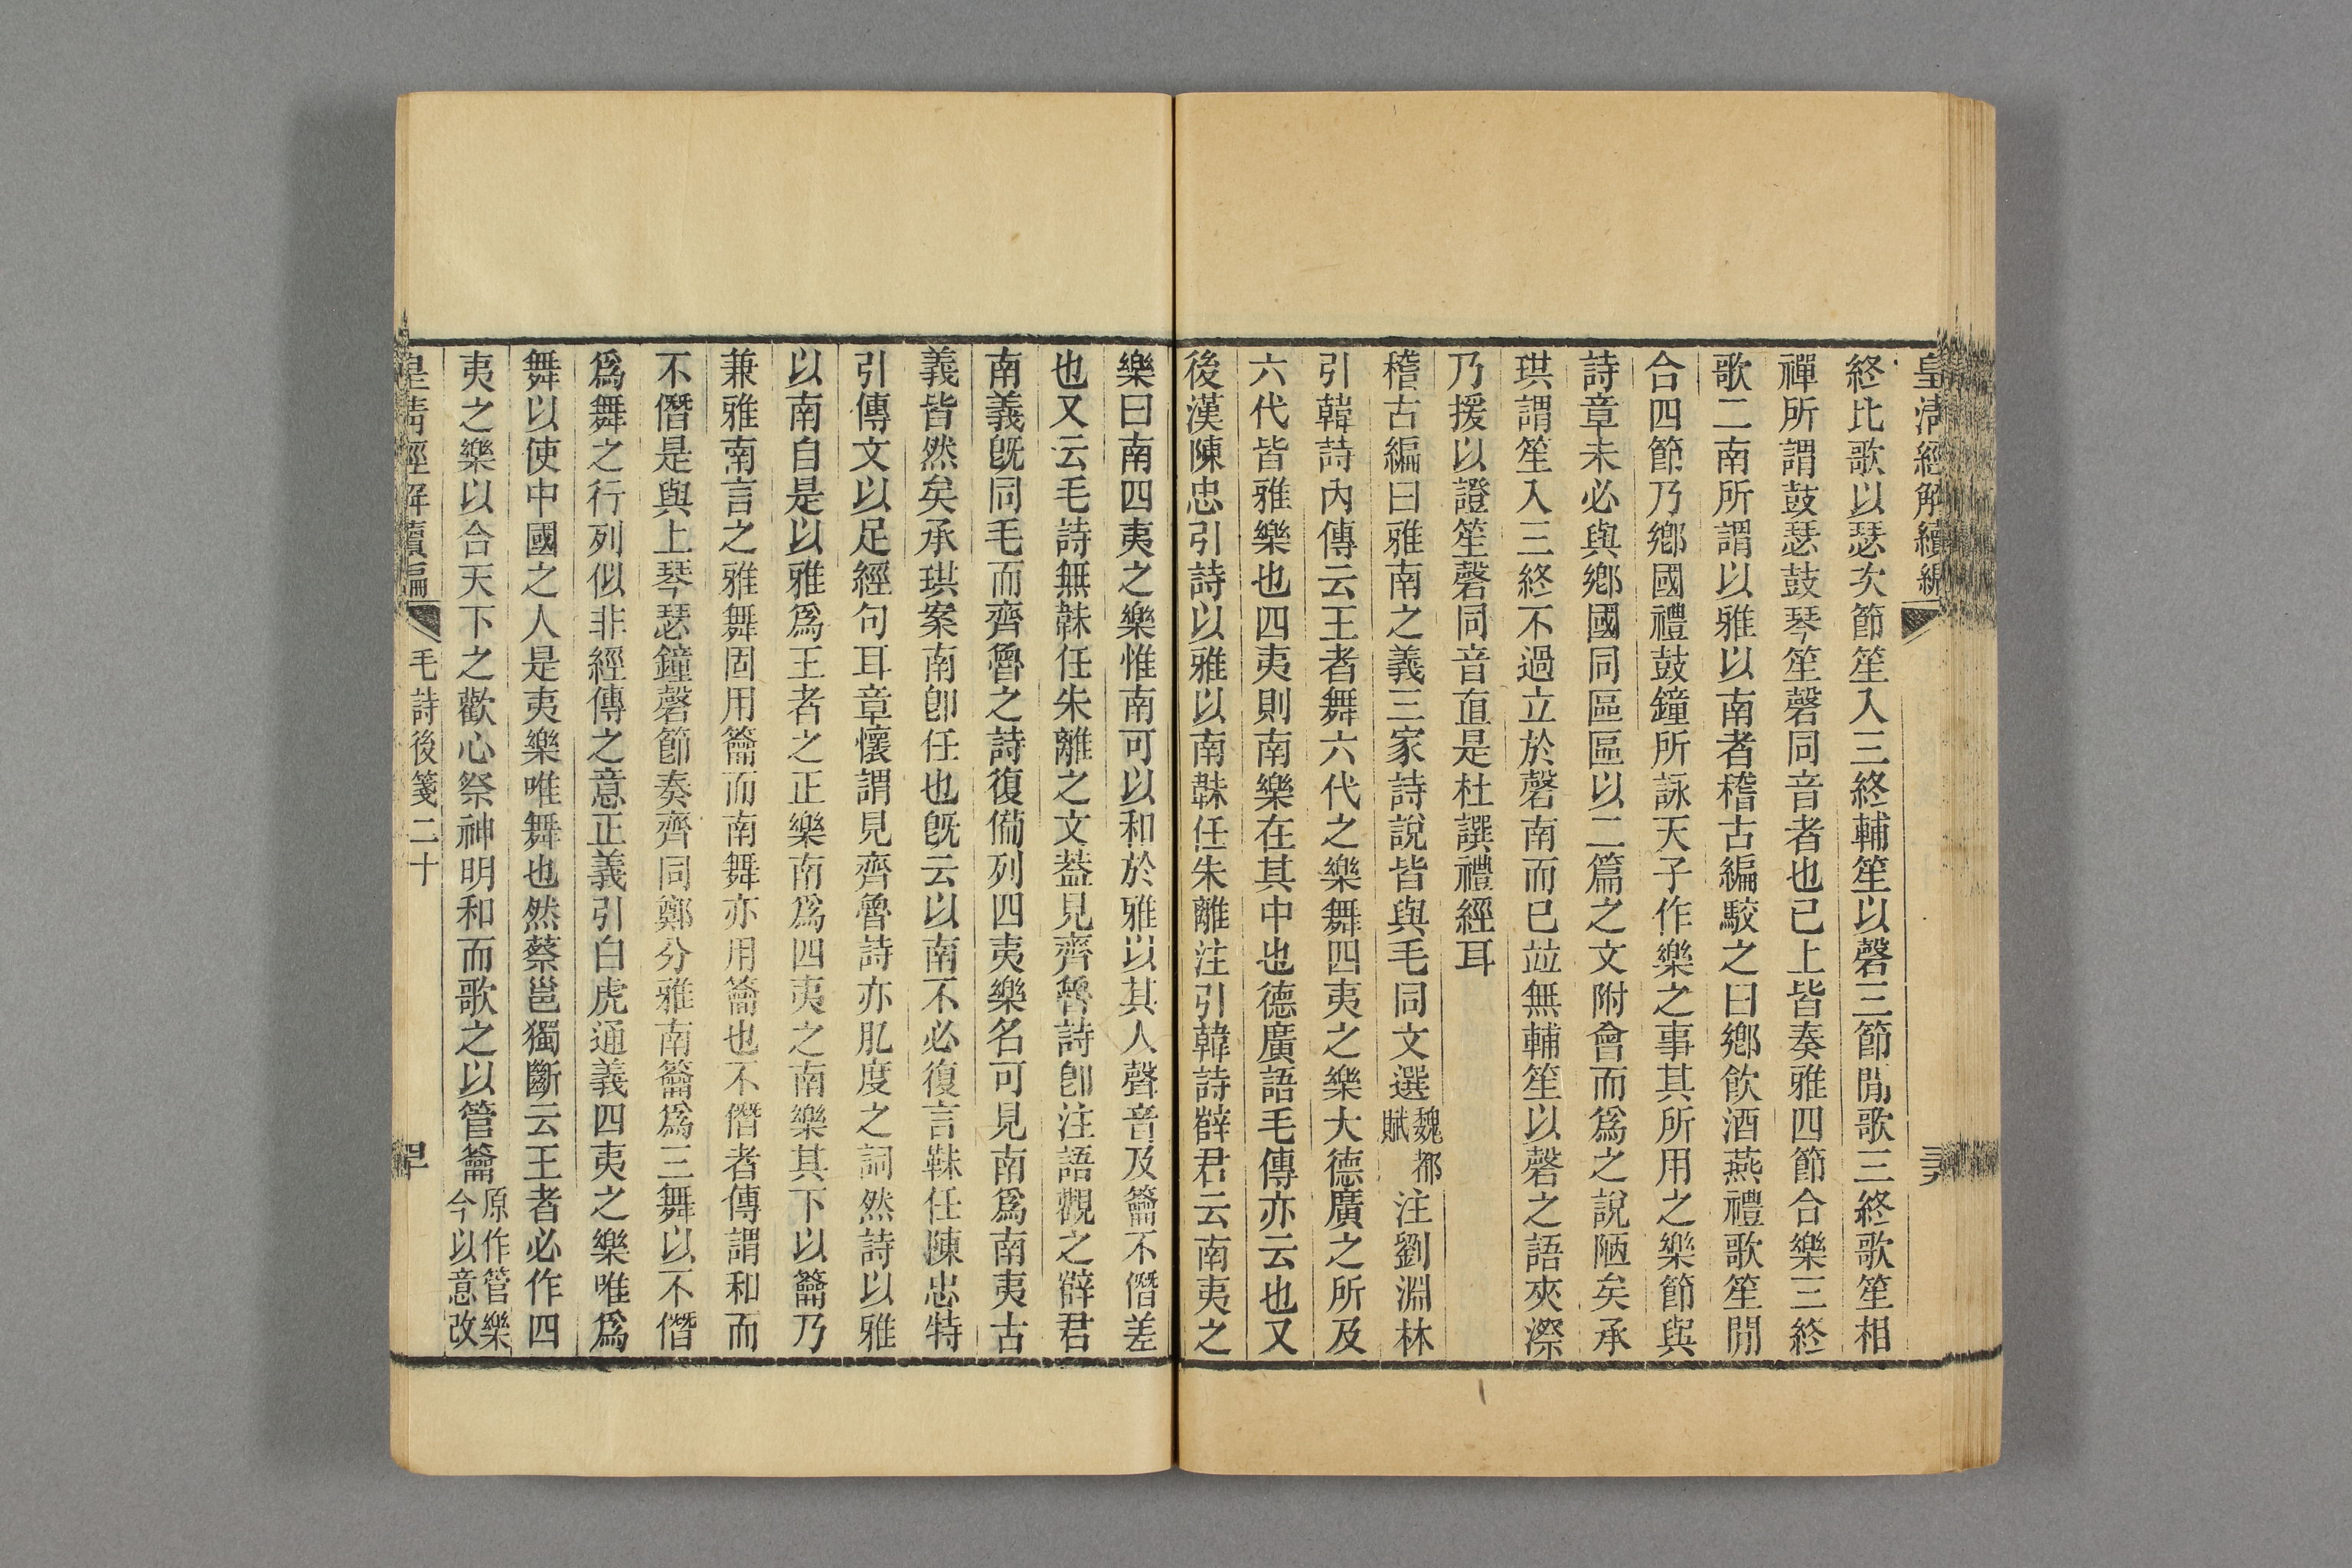 皇清經解續編
終比歌以瑟次節笙入三終輔笙以磬三節閒歌三終歌笙相
禪所謂鼓瑟鼓琴笙磬同音者也已上皆奏雅四節合樂三終
歌二南所謂以雅以南者稽古編駮之曰鄉飲酒燕禮歌笙閒
合四節乃鄉國禮鼓鐘所詠天子作樂之事其所用之樂節與
詩章未必與鄉國同區區以二篇之文附會而爲之說陋矣承
珙謂笙入三終不過立於磬南而已竝無輔笙以磬之語夾漈
乃援以證笙磬同音直是杜譔禮經耳
稽古編曰雅南之義三家詩說皆與毛同文選魏都賦注劉淵林
引韓詩內傳云王者舞六代之樂舞四夷之樂大德廣之所及
六代皆雅樂也四夷則南樂在其中也德廣語毛傳亦云也又
後漢陳忠引詩以雅以南韎任朱離注引韓詩薛君云南夷之
樂曰南四夷之樂惟南可以和於雅以其人聲音及籥不僭差
也又云毛詩無韎任朱離之文葢見齊魯詩卽注語觀之薛君
南義旣同毛而齊魯之詩復備列四夷樂名可見南爲南夷古
義皆然矣承珙案南卽任也旣云以南不必復言韎任陳忠特
引傳文以足經句耳章懷謂見齊魯詩亦肊度之詞然詩以雅
以南自是以雅爲王者之正樂南爲四夷之南樂其下以籥乃
兼雅南言之雅舞固用籥而南舞亦用籥也不僭者傳謂和而
不僭是與上琴瑟鐘磬節奏齊同鄭分雅南籥爲三舞以不僭
爲舞之行列似非經傳之意正義引白虎通義四夷之樂唯爲
舞以使中國之人是夷樂唯舞也然蔡邕獨斷云王者必作四
夷之樂以合天下之歡心祭神明和而歌之以管籥原作管樂今以意改
皇清經解續編 毛詩後箋二十